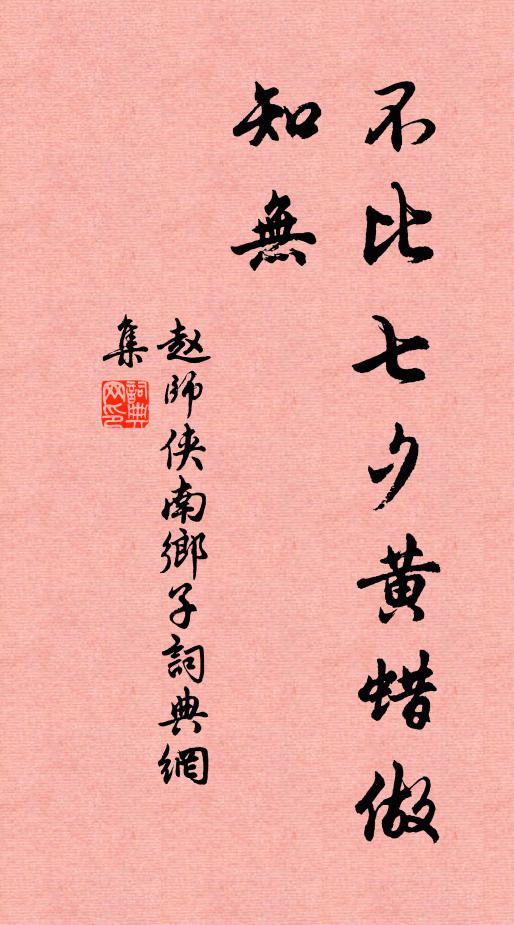 不比七夕黄蜡做
知無
赵師侠南鄉子詞典網
集
詞典
网印